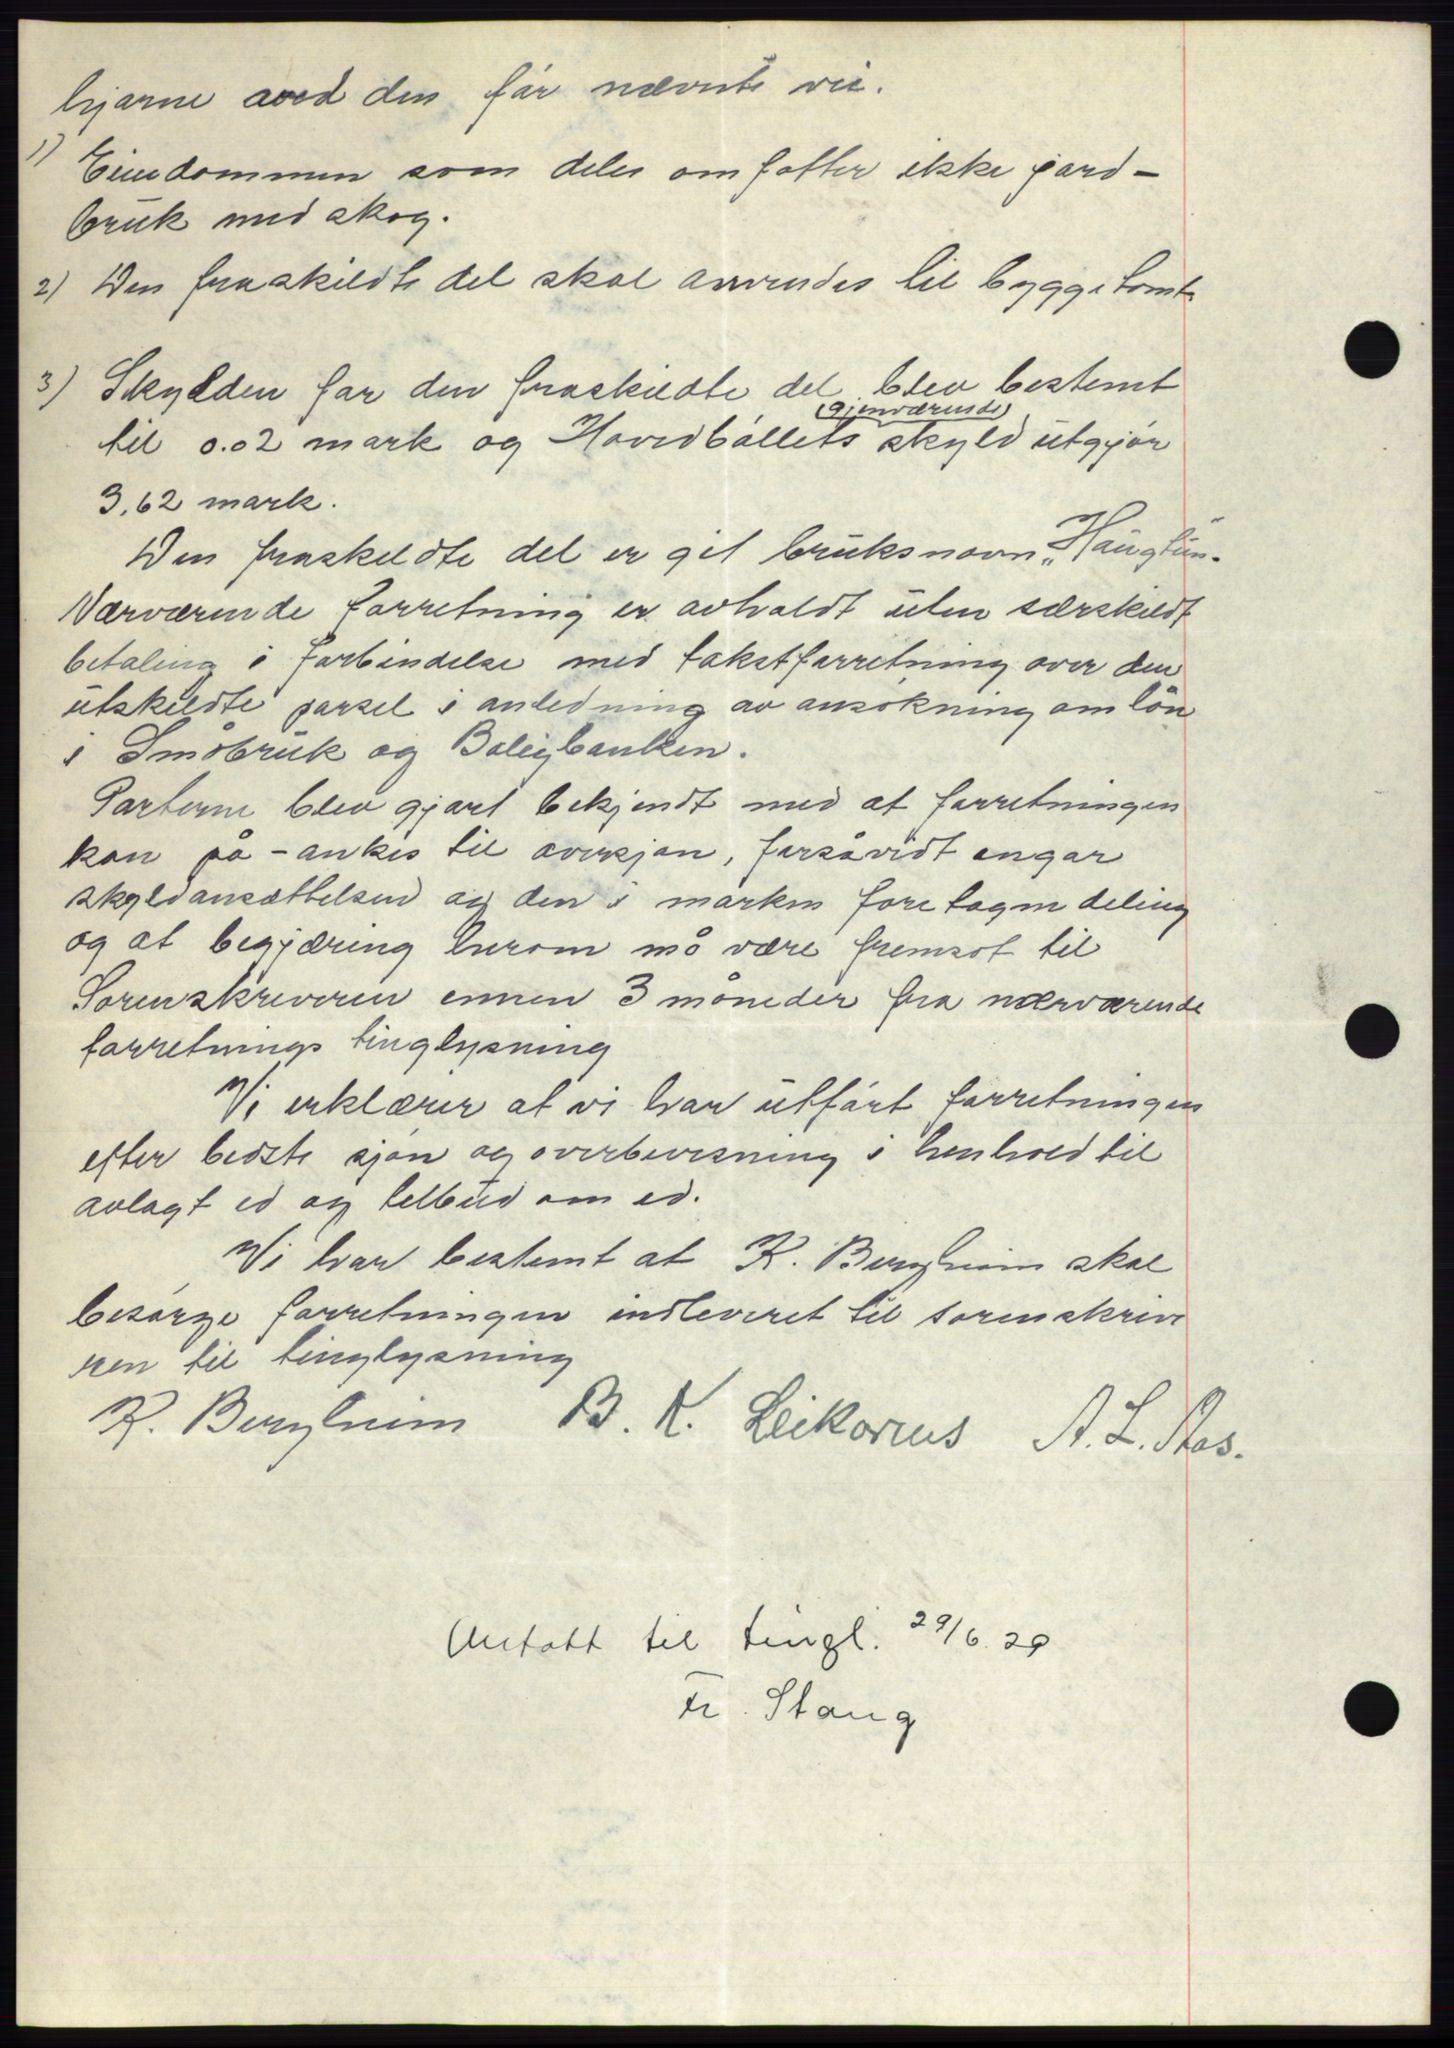 hjørne ved den før nævnte vei.
1) Eiendommen som deles omfatter ikke gard-
bruk med skog.
2) Den fraskildte del skal anvendes til byggetomt
3) Skylden for den fraskildte del blev bestemt
til 0.02 mark og Hovedbøllets (gjenværende) skyld utgjør
3,62 mark.
Den fraskildte del er git bruksnavn „Haugtun.
Nærværende forretning er avholdt uten særskildt
betaling i forbindelse med takstforretning over den
utskildte parsel i anledning av ansøkning om lån
i Småbruk og Boligbanken.
Parterne blev gjort bekjendt med at forretningen
kan på-ankes til overskjøn, forsåvidt angår
skyldansættelsen og den i marken foretagne deling
og at begjæring herom må være fremsat til
Sorenskriveren innen 3 måneder fra nærværende
forretnings tinglysning
Vi erklærer at vi har utført forretningen
efter bedste skjøn og overbevisning i henhold til
avlagt ed og tilbud om ed.
Vi har bestemt at K. Bergheim skal
besørge forretningen indleveret til sorenskrive
ren til tinglysning
K. Bergheim B. K. Leikarnes A. L. Aas.
Mottatt til tingl. 29/6.29
Fr. Stang